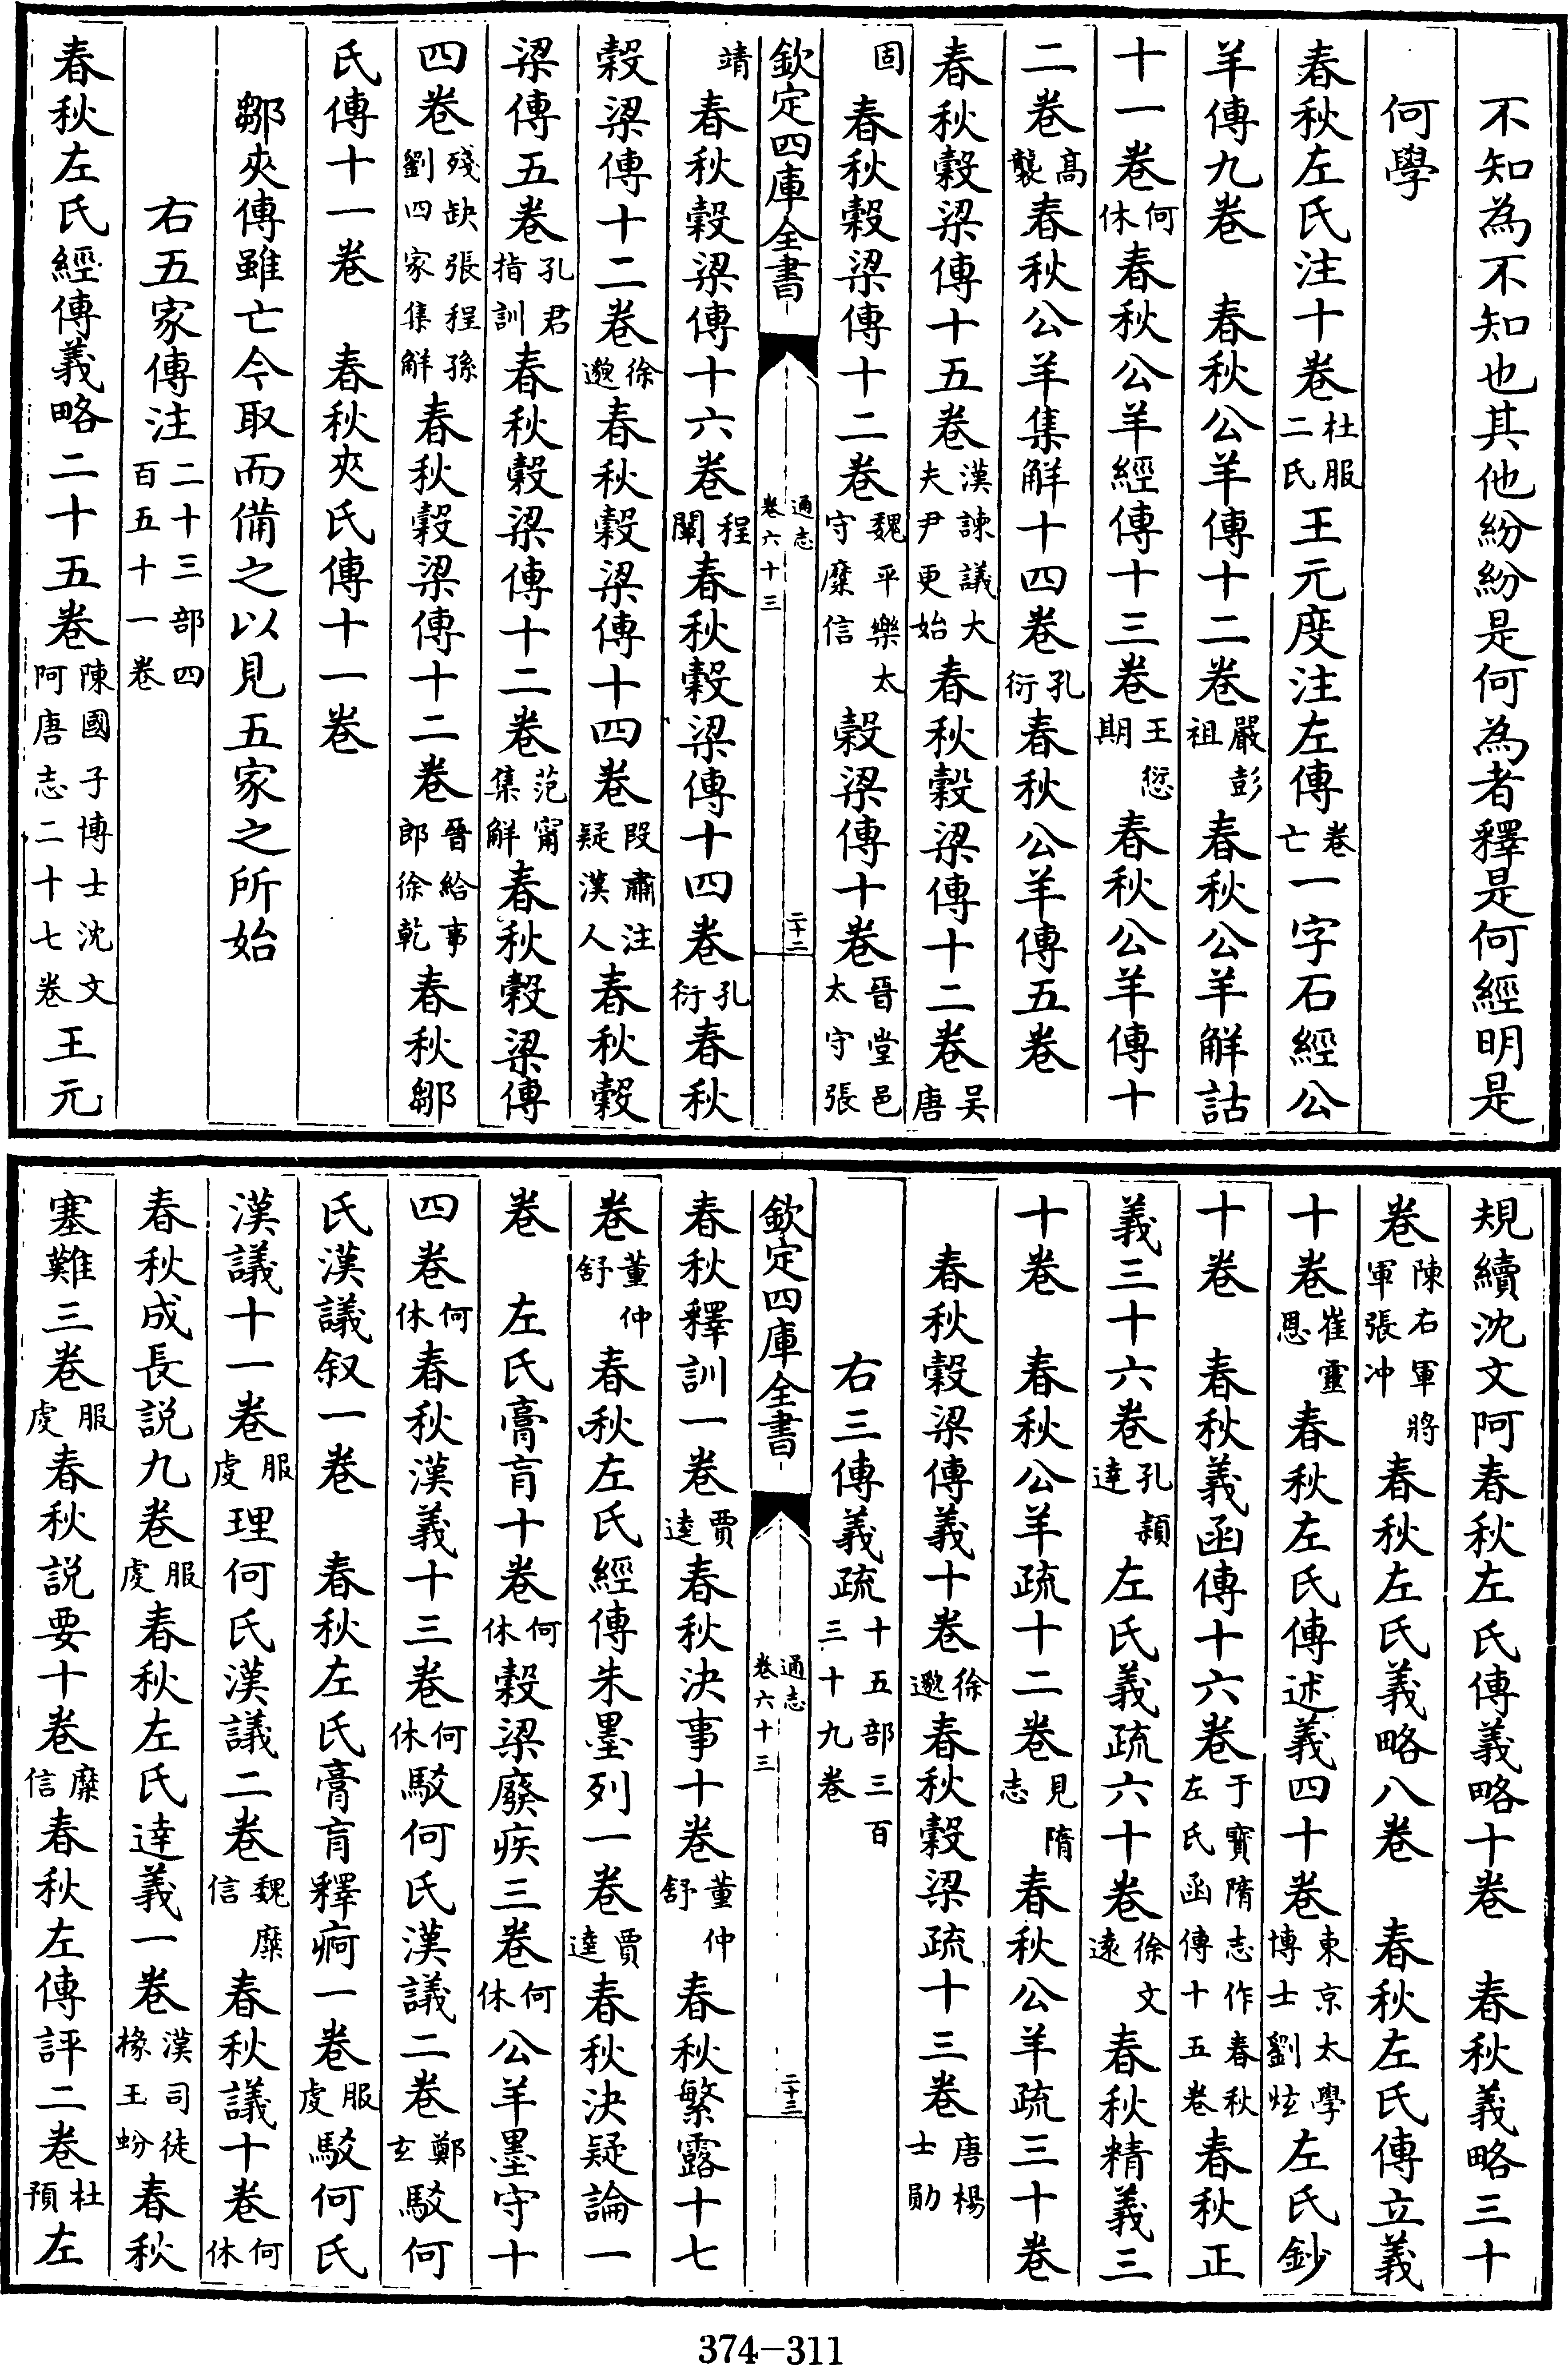 不知為不知也其他紛紛是何為者釋是何經明是
何學
春秋左氏注十卷杜服二氏王元度注左傳卷亡一字石經公
羊傳九卷 春秋公羊傳十二卷嚴彭祖 春秋公羊解詁
十一卷何休春秋公羊經傳十三卷王愆期 春秋公羊傳十
二卷高襲春秋公羊集解十四卷孔衍春秋公羊傳五卷
春秋穀梁傳十五卷漢諫議大夫尹更始 春秋穀梁傳十二卷吴唐
固 春秋穀梁傳十二卷魏平樂太守糜信 穀梁傳十卷晉堂邑太守張
欽定四庫全書 通志卷六十三 二十二
靖 春秋穀梁傳十六卷程闡春秋穀梁傳十四卷孔衍春秋
穀梁傳十二卷徐邈春秋穀梁傳十四卷段肅注疑漢人 春秋穀
梁傳五卷孔君指訓春秋穀梁傳十二卷范甯集解春秋穀梁傳
四卷殘缺張程孫劉四家集解春秋穀梁傳十二卷晉給事郎徐乾春秋鄒
氏傳十一卷 春秋夾氏傳十一卷
鄒夾傳雖亡今取而備之以見五家之所始
右五家傳注二十三部四百五十一卷
春秋左氏經傳義略二十五卷陳國子博士沈文阿唐志二十七卷王元
規續沈文阿春秋左氏傳義略十卷 春秋義略三十
卷陳右軍將軍張冲 春秋左氏義略八卷 春秋左氏傳立義
十卷崔靈恩 春秋左氏傳述義四十卷東京太學博士劉炫左氏鈔
十卷 春秋義函傳十六卷于寶隋志作春秋左氏函傳十五卷春秋正
義三十六卷孔穎達 左氏義疏六十卷徐文遠 春秋精義三
十卷 春秋公羊疏十二卷見隋志 春秋公羊疏三十卷
春秋穀梁傳義十卷徐邈春秋穀梁疏十三卷唐楊士勛
右三傳義疏十五部三百三十九卷
欽定四庫全書 通志卷六十三 二十三
春秋釋訓一卷賈逵春秋決事十卷董仲舒 春秋繁露十七
卷董仲舒 春秋左氏經傳朱墨列一卷賈逵春秋決疑論一
卷 左氏膏肓十卷何休穀梁廢疾三卷何休公羊墨守十
四卷何休春秋漢義十三卷何休駁何氏漢議二卷鄭玄駁何
氏漢議叙一卷 春秋左氏膏肓釋痾一卷服虔駁何氏
漢議十一卷服虔理何氏漢議二卷魏糜信 春秋議十卷何休
春秋成長說九卷服虔春秋左氏達義一卷漢司徒椽王玢春秋
塞難三卷服虔春秋說要十卷糜信春秋左傳評二卷杜預左
374-311